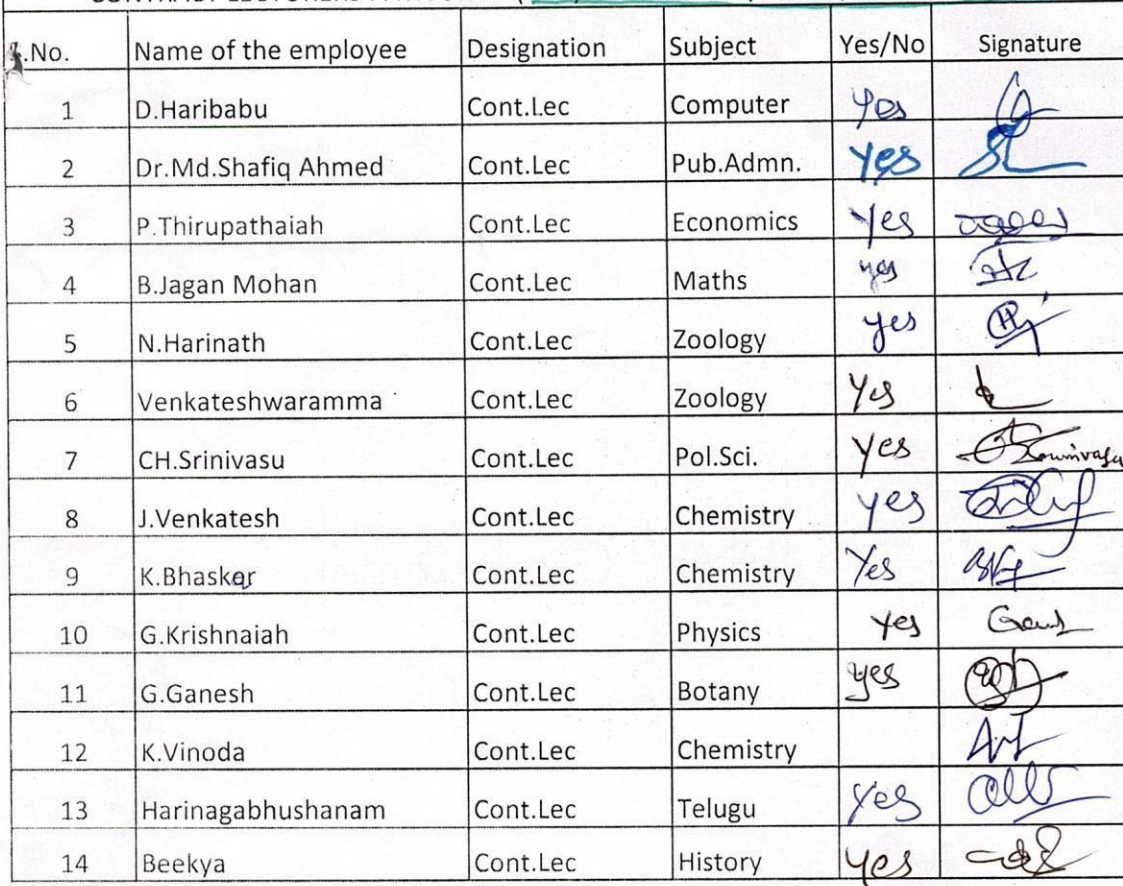 CONTRACT LECTURERS
S.No. Name of the employee Designation Subject Yes/No Signature
1 D.Haribabu Cont.Lec Computer Yes
2 Dr.Md.Shafiq Ahmed Cont.Lec Pub.Admn. Yes
3 P.Thirupathaiah Cont.Lec Economics Yes
4 B.Jagan Mohan Cont.Lec Maths yes
5 N.Harinath Cont.Lec Zoology yes
6 Venkateshwaramma Cont.Lec Zoology Yes
7 CH.Srinivasu Cont.Lec Pol.Sci. Yes
8 J.Venkatesh Cont.Lec Chemistry yes
9 K.Bhasker Cont.Lec Chemistry Yes
10 G.Krishnaiah Cont.Lec Physics Yes
11 G.Ganesh Cont.Lec Botany yes
12 K.Vinoda Cont.Lec Chemistry
13 Harinagabhushanam Cont.Lec Telugu Yes
14 Beekya Cont.Lec History yes